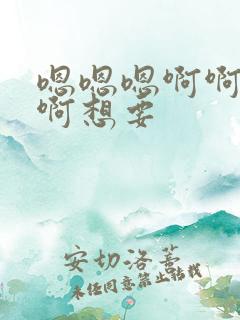 嗯嗯嗯啊啊
啊想要
安切洛蒂
未经同意禁止转载